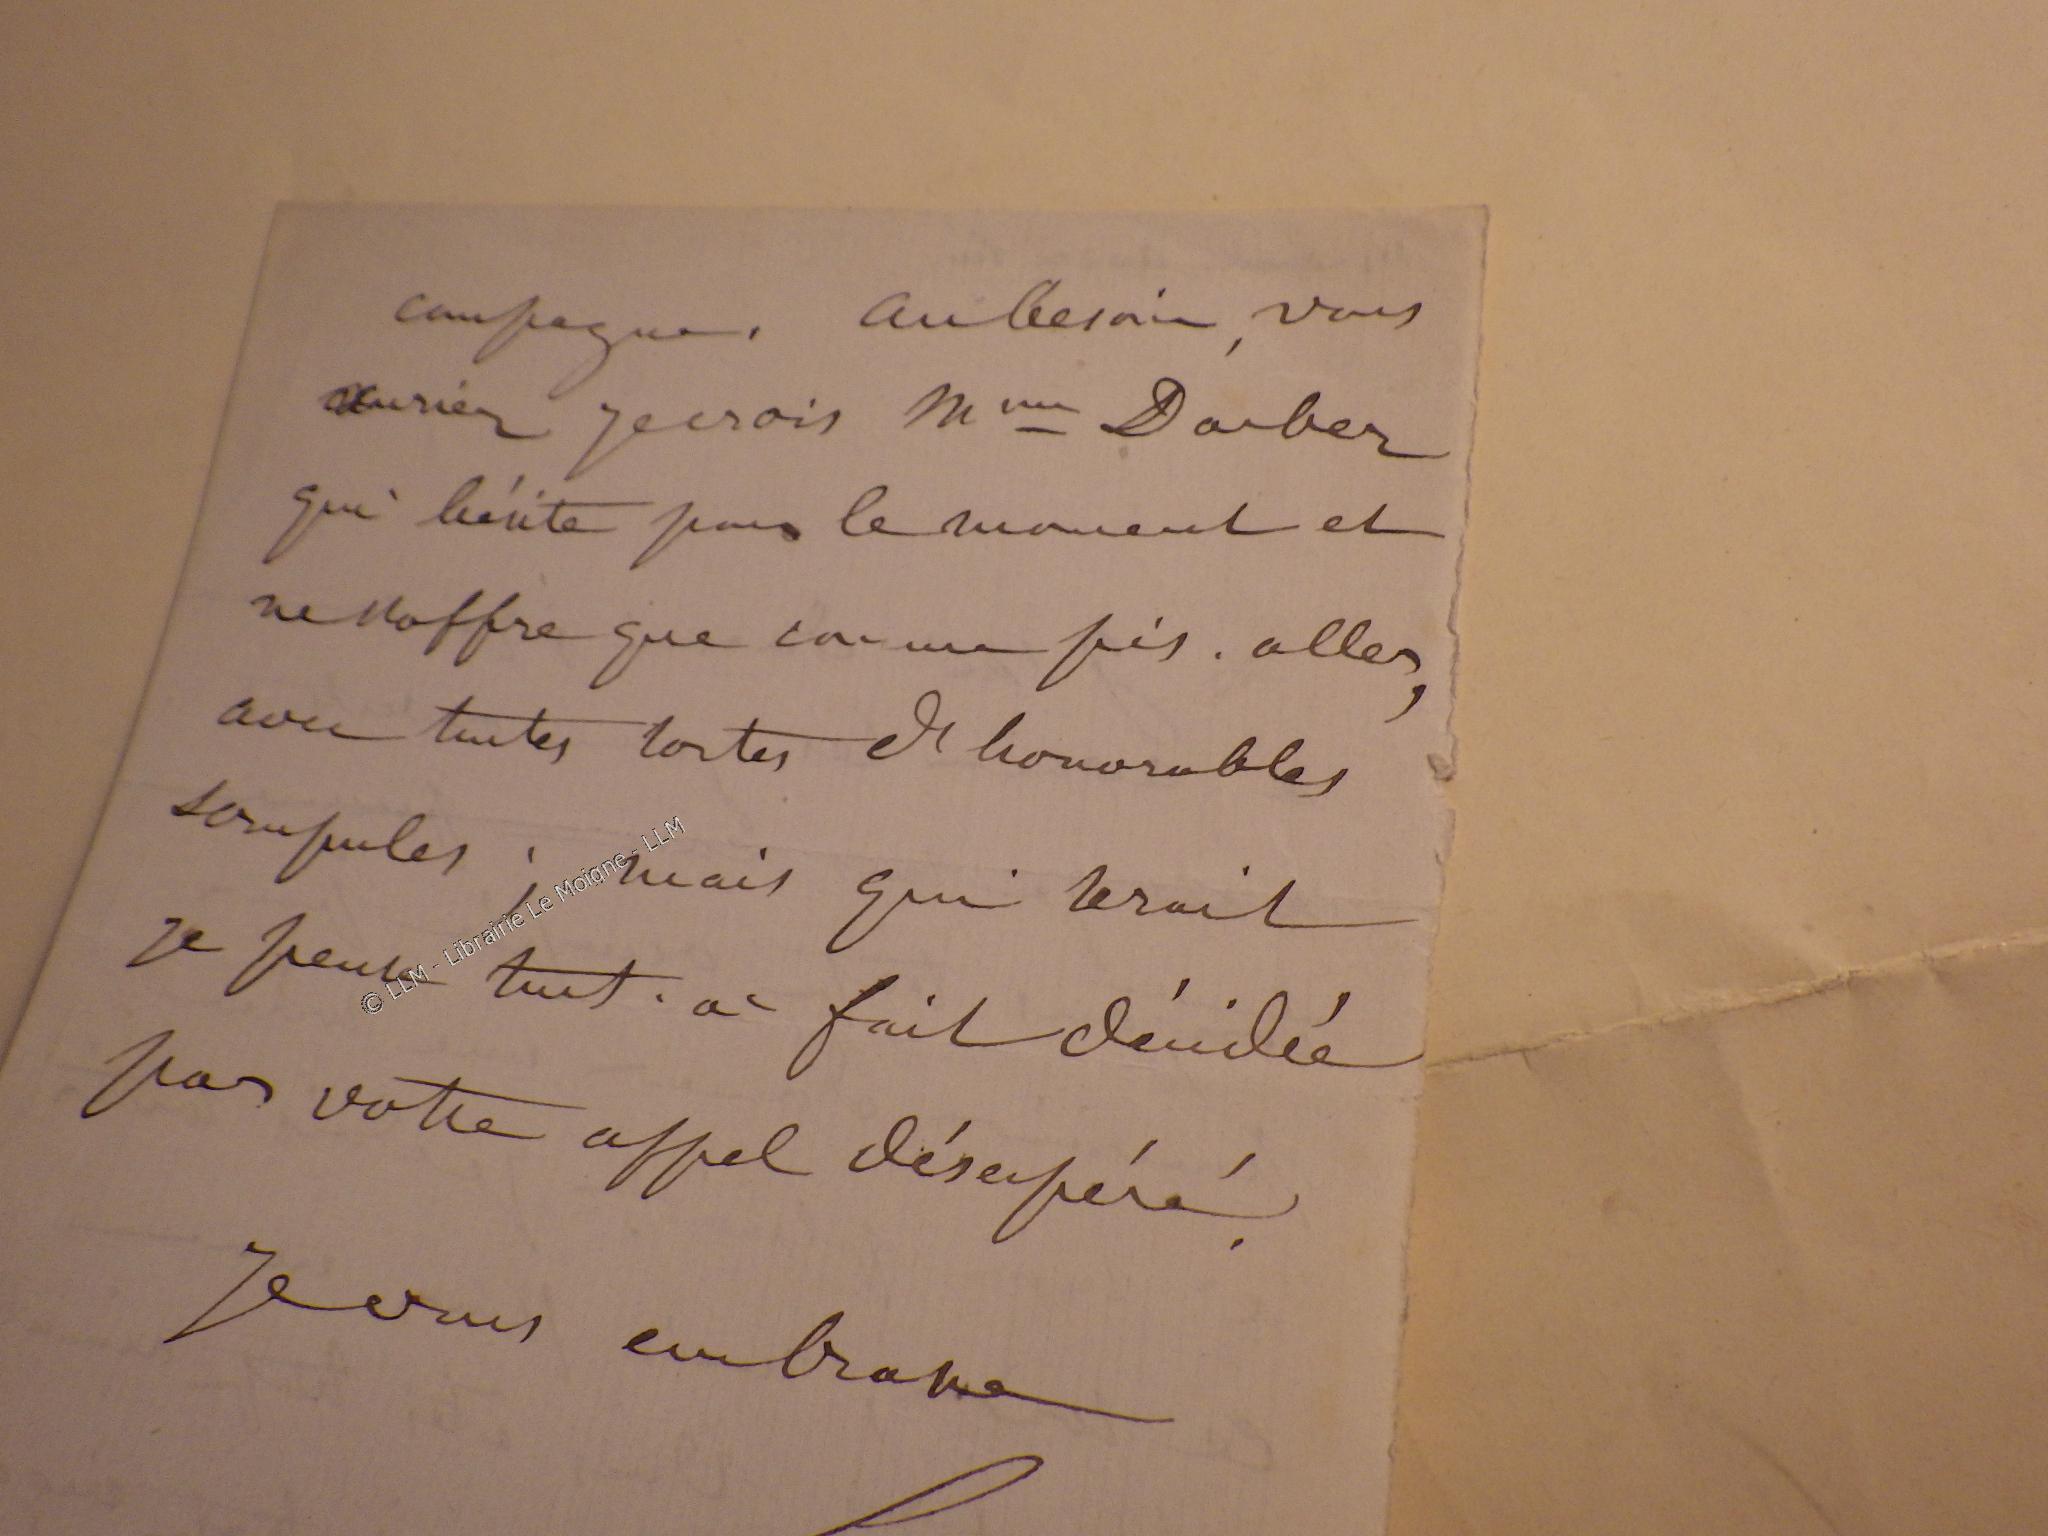 campagne. Au besoin, vous
auriez je crois Mme Darber
qui hésite pour le moment et
ne s'offre que comme pis-aller,
avec toutes sortes d'honorables
scrupules ; mais qui serait
je pense tout-à-fait décidée
par votre appel désespéré.
Je vous embrasse
© LLM - Librairie Le Moigne - LLM